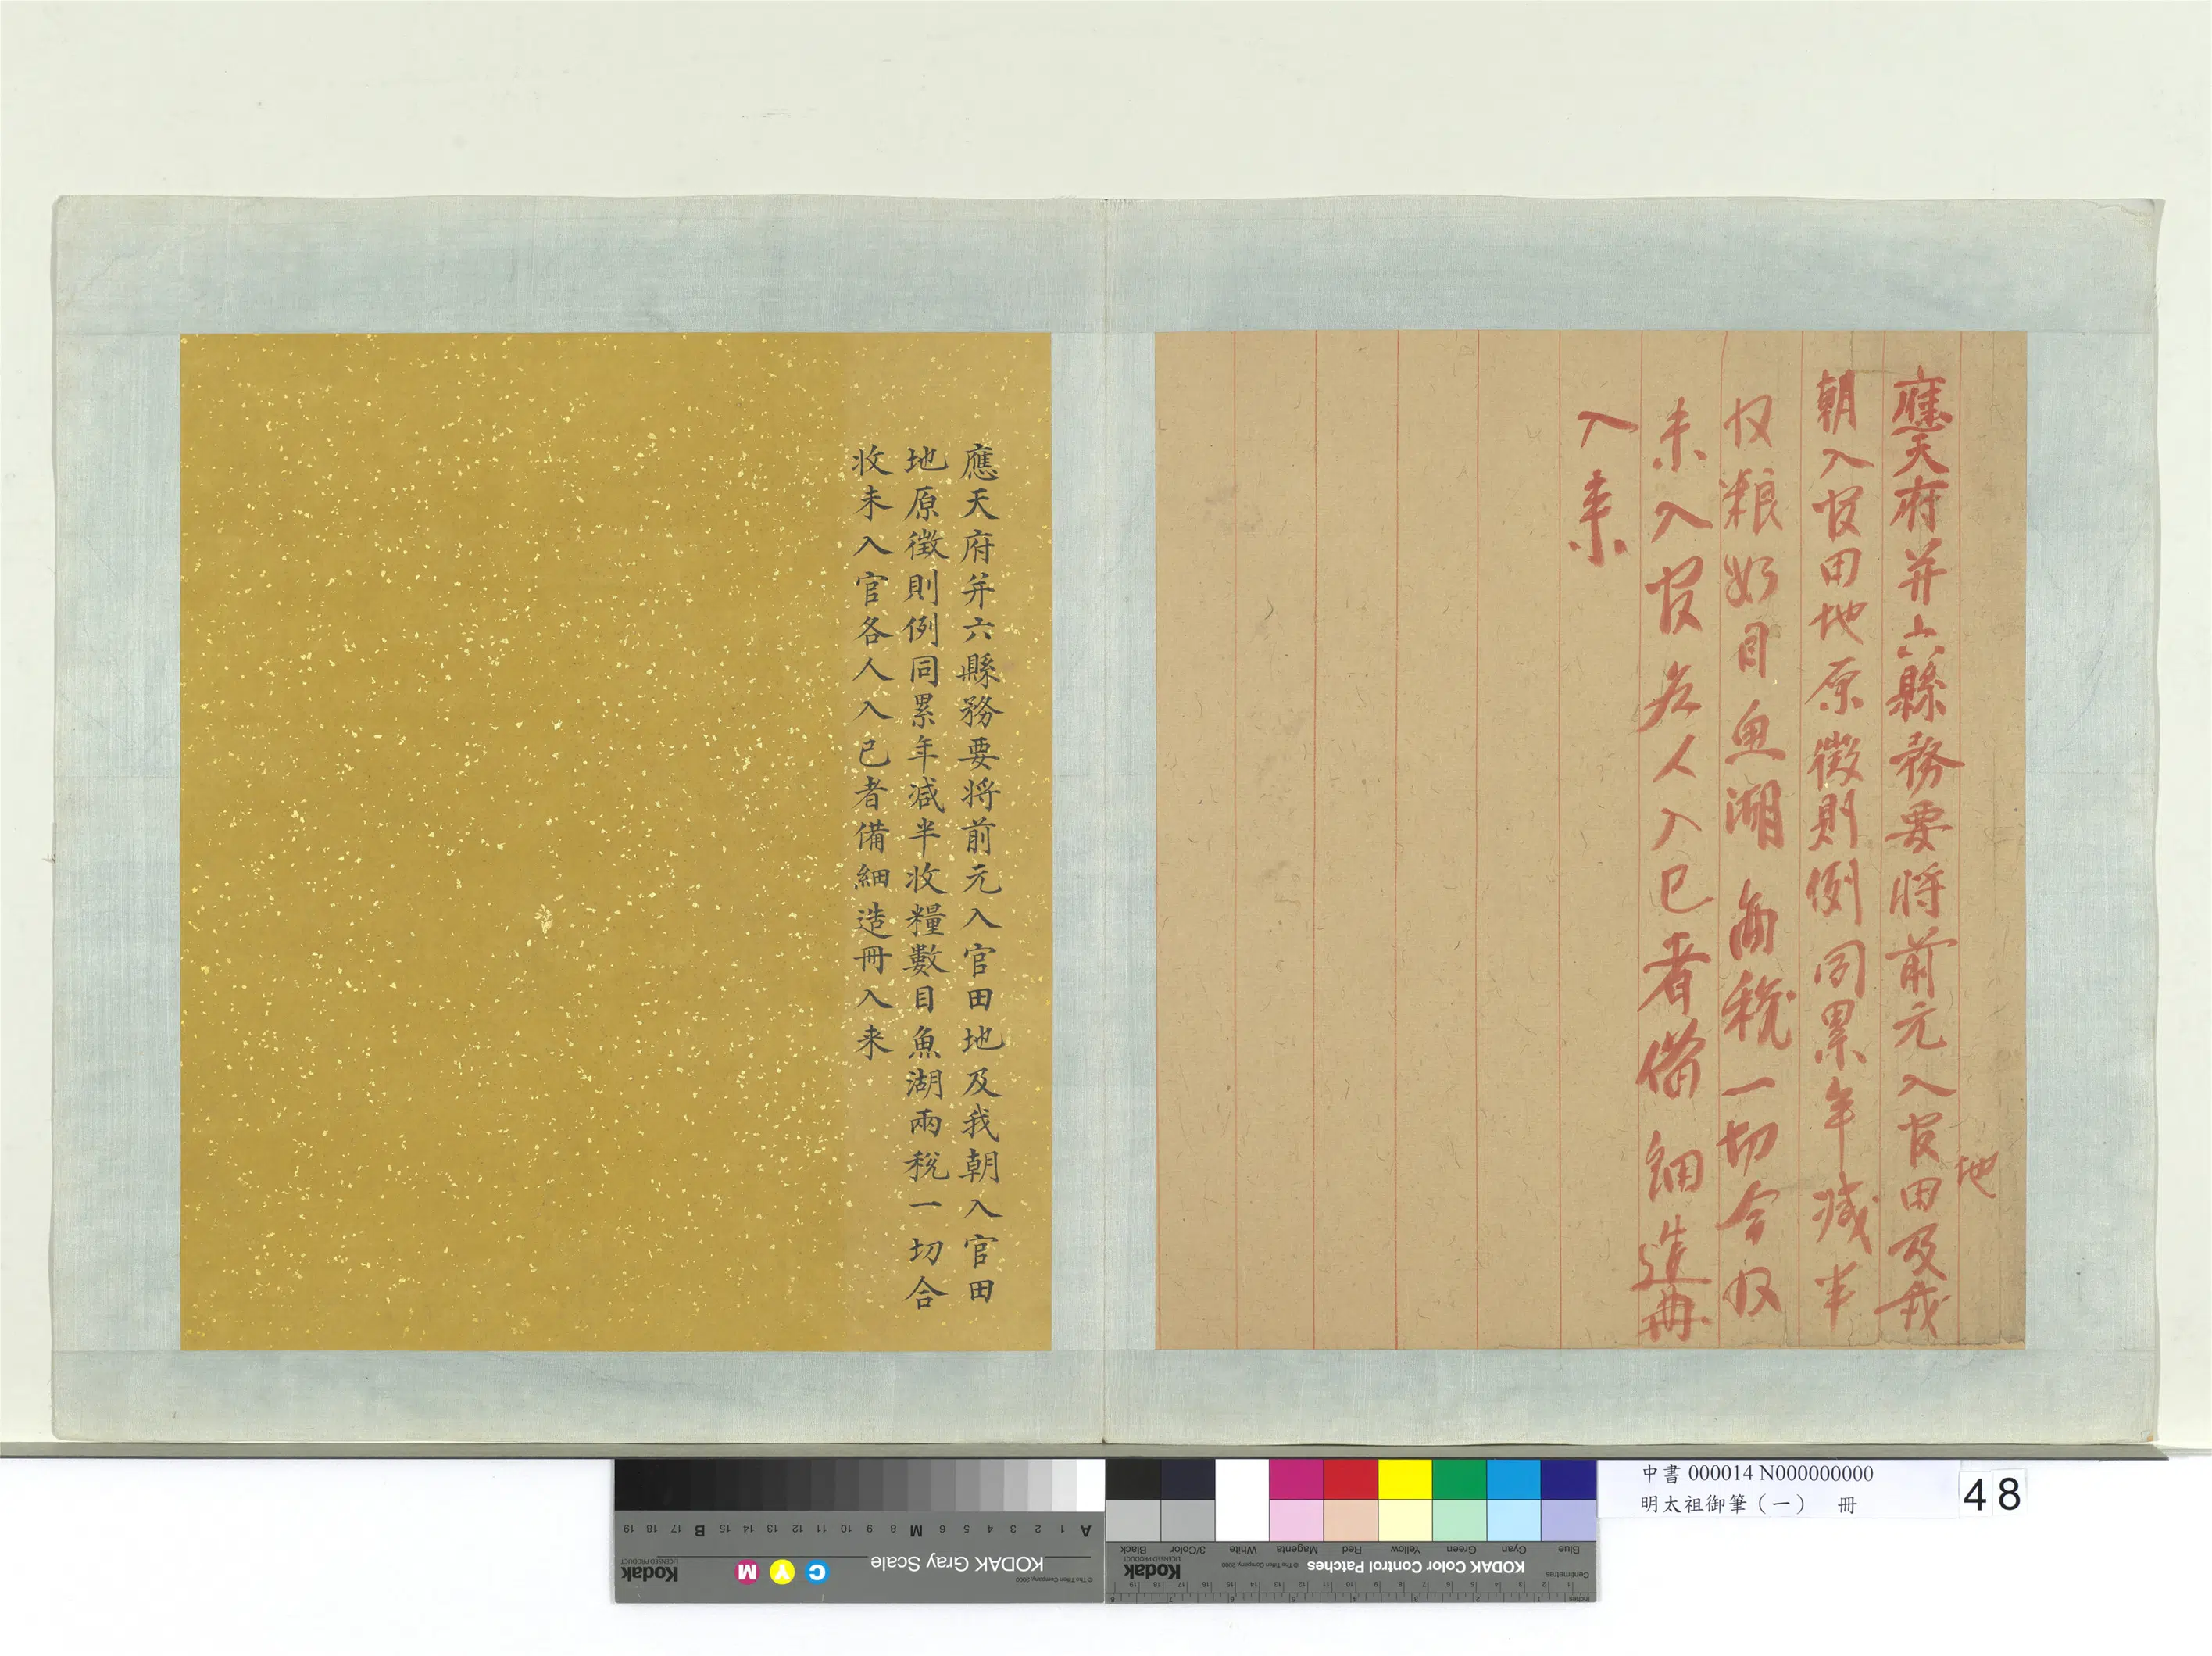 應天府并六縣務要將前元入官田及我
地
朝入官田地原徵則例同累年減半
收粮数目魚湖兩税一切合收
未入官各人入已者備細造冊
入来
應天府并六縣務要將前元入官田地及我朝入官田
地原徵則例同累年減半收糧數目魚湖兩税一切合
收未入官各人入已者備細造冊入来
中書 000014 N000000000
明太祖御筆（一） 冊
48
KODAK Gray Scale
C Y M
Kodak
LICENSED PRODUCT
© The Tiffen Company, 2000
A 1 2 3 4 5 6 M 8 9 10 11 12 13 14 15 B 17 18 19
KODAK Color Control Patches
Kodak
LICENSED PRODUCT
© The Tiffen Company, 2000
Blue Cyan Green Yellow Red Magenta White 3/Color Black
Centimetres
Inches